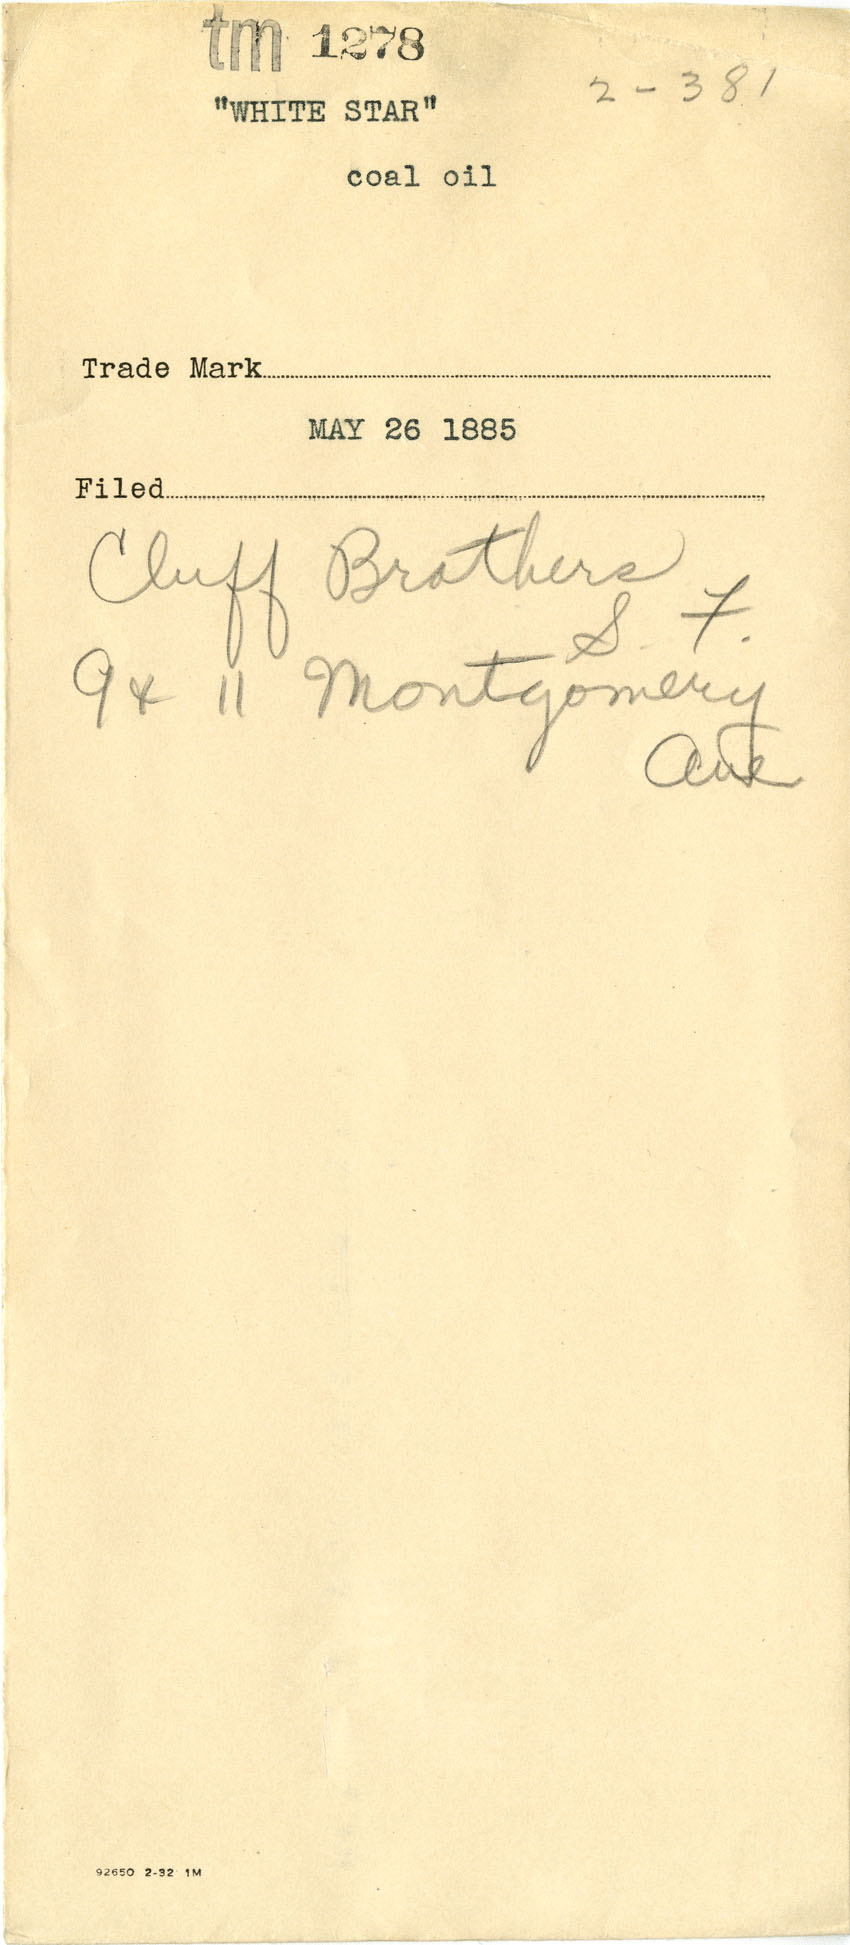 tm 1278
2-381
"WHITE STAR"
coal oil
Trade Mark
MAY 26 1885
Filed
Cluff Brothers
S. F.
9 & 11 Montgomery
Ave
92650 2-32 1M